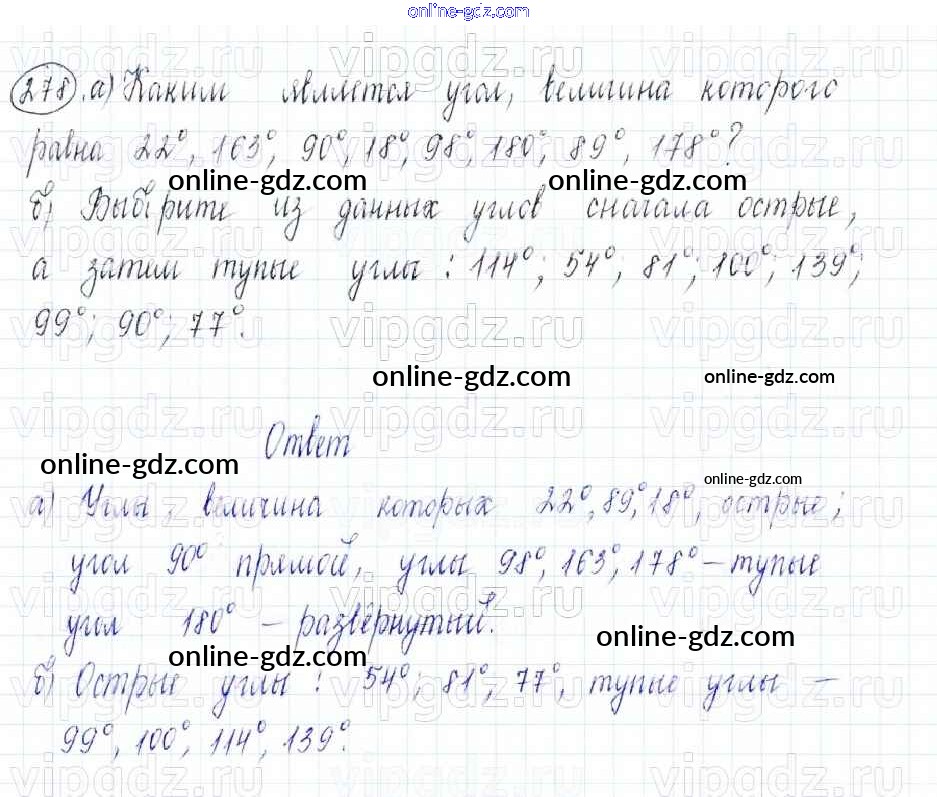 online-gdz.com
278. а) Каким является угол, величина которого
равна 22°, 163°, 90°, 18°, 98°, 180°, 89°, 178°?
online-gdz.com online-gdz.com
б) Выберите из данных углов сначала острые,
а затем тупые углы: 114°; 54°; 81°; 100°; 139°;
99°; 90°; 77°.
vipgdz.ru vipgdz.ru vipgdz.ru
online-gdz.com online-gdz.com
Ответ
online-gdz.com
online-gdz.com
а) Углы, величина которых 22°, 89°, 18°, острые;
угол 90° прямой, углы 98°, 163°, 178° – тупые
угол 180° – развёрнутый.
online-gdz.com
online-gdz.com
б) Острые углы: 54°, 81°, 77°, тупые углы –
99°, 100°, 114°, 139°.